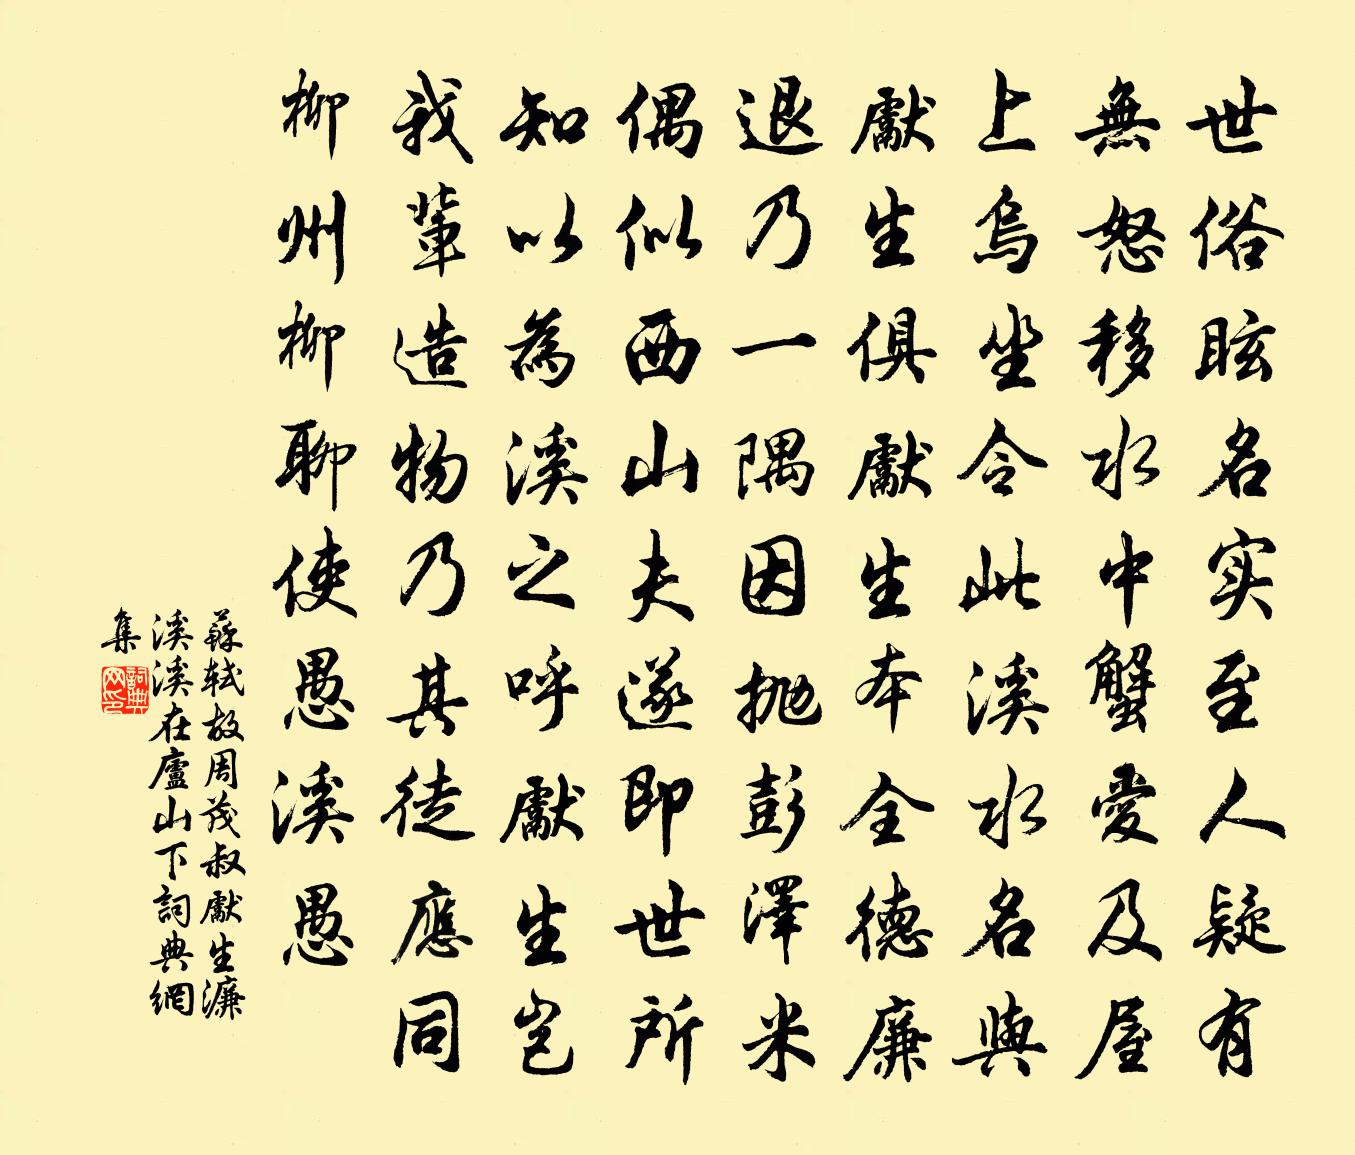 世俗眩名实至人疑有
無怒移水中蟹愛及屋
上烏坐令此溪水名與
獻生俱獻生本全德廉
退乃一隅因抛彭澤米
偶似西山夫遂即世所
知以為溪之呼獻生豈
我輩造物乃其徒應同
柳州柳聊使愚溪愚
蘇軾故周茂叔獻生濂
溪溪在廬山下詞典網
集
詞典
网印